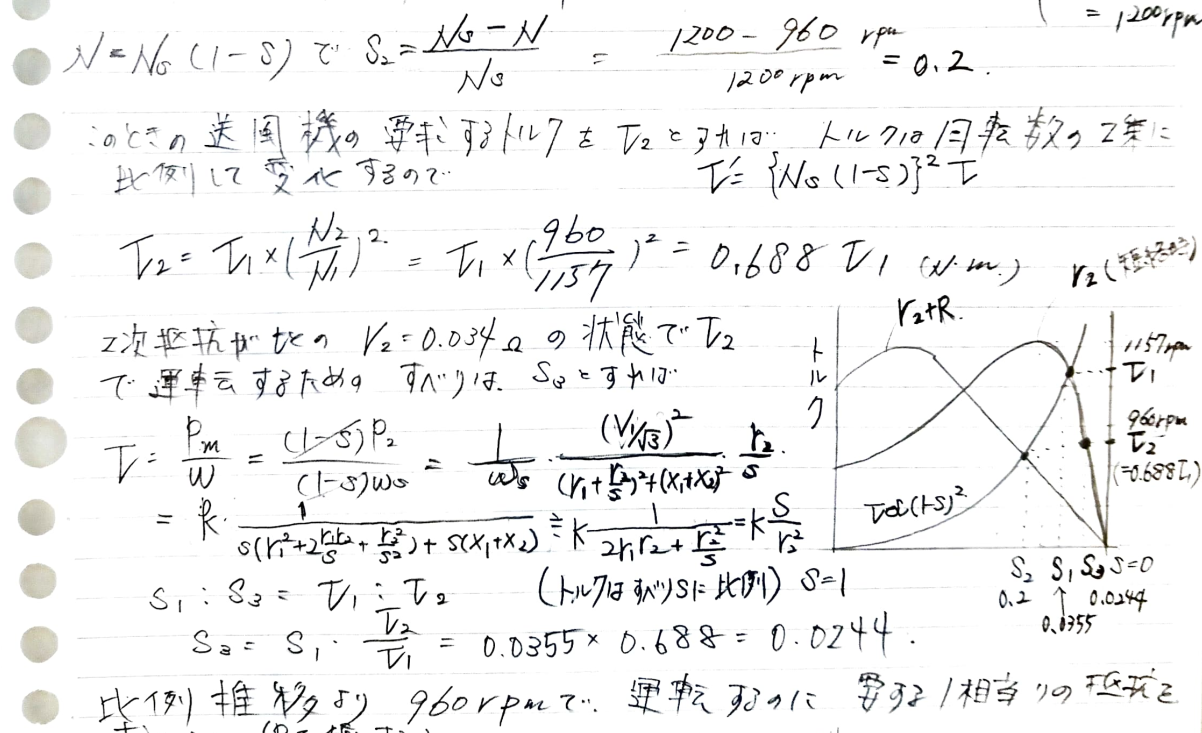 = 1200rpm
N=Ns(1-S) で S₂= (Ns-N)/Ns = (1200-960 rpm)/(1200rpm) = 0.2.
このときの送風機の要求するトルクをT₂とすれば トルクは回転数の2乗に
比例して変化するので T'={Ns(1-S)}²T
T₂= T₁×(N₂/N₁)². = T₁×(960/1157)² = 0.688 T₁ (N·m.)
2次抵抗がもとの r₂=0.034Ω の状態でT₂
で運転するための すべりは S₃とすれば
T= Pm/ω = (1-S)P₂/(1-S)ωs = 1/ωs · (V₁/√3)²/((r₁+r₂/s)²+(x₁+x₂)²) · r₂/s.
= k· 1/(s(r₁²+2r₁r₂/s+r₂²/s²)+s(x₁+x₂)) ≒ k 1/(2r₁r₂+r₂²/s) = k s/r₂²
S₁:S₃= T₁:T₂ (トルクはすべりSに比例)
S₃= S₁· T₂/T₁ = 0.0355×0.688= 0.0244.
比例推移より 960rpmで 運転するのに 要する1相当りの抵抗を
r₂(短絡)
r₂+R.
トルク
1157rpm
T₁
960rpm
T₂
(=0.688T₁)
T∝(1-S)².
S=1
S₂ S₁ S₃ S=0
0.2 ↑ 0.0244
0.0355